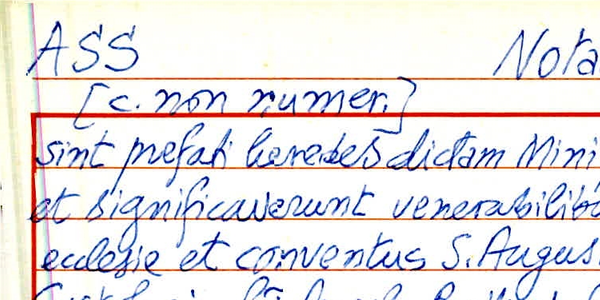 ASS Nota
[c. non numer.]
sint prefati heredes dictam Mini
et significaverunt venerabilib
ecclesie et conventus S. Augus